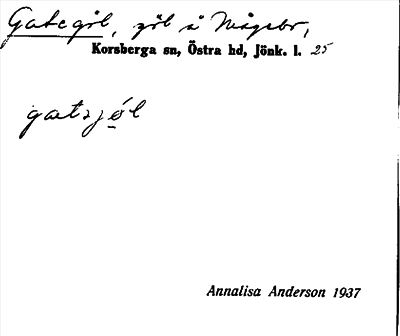 Gategöl, göl å Mågebo,
Korsberga sn, Östra hd, Jönk. l. 25
gatₔjól
Annalisa Anderson 1937